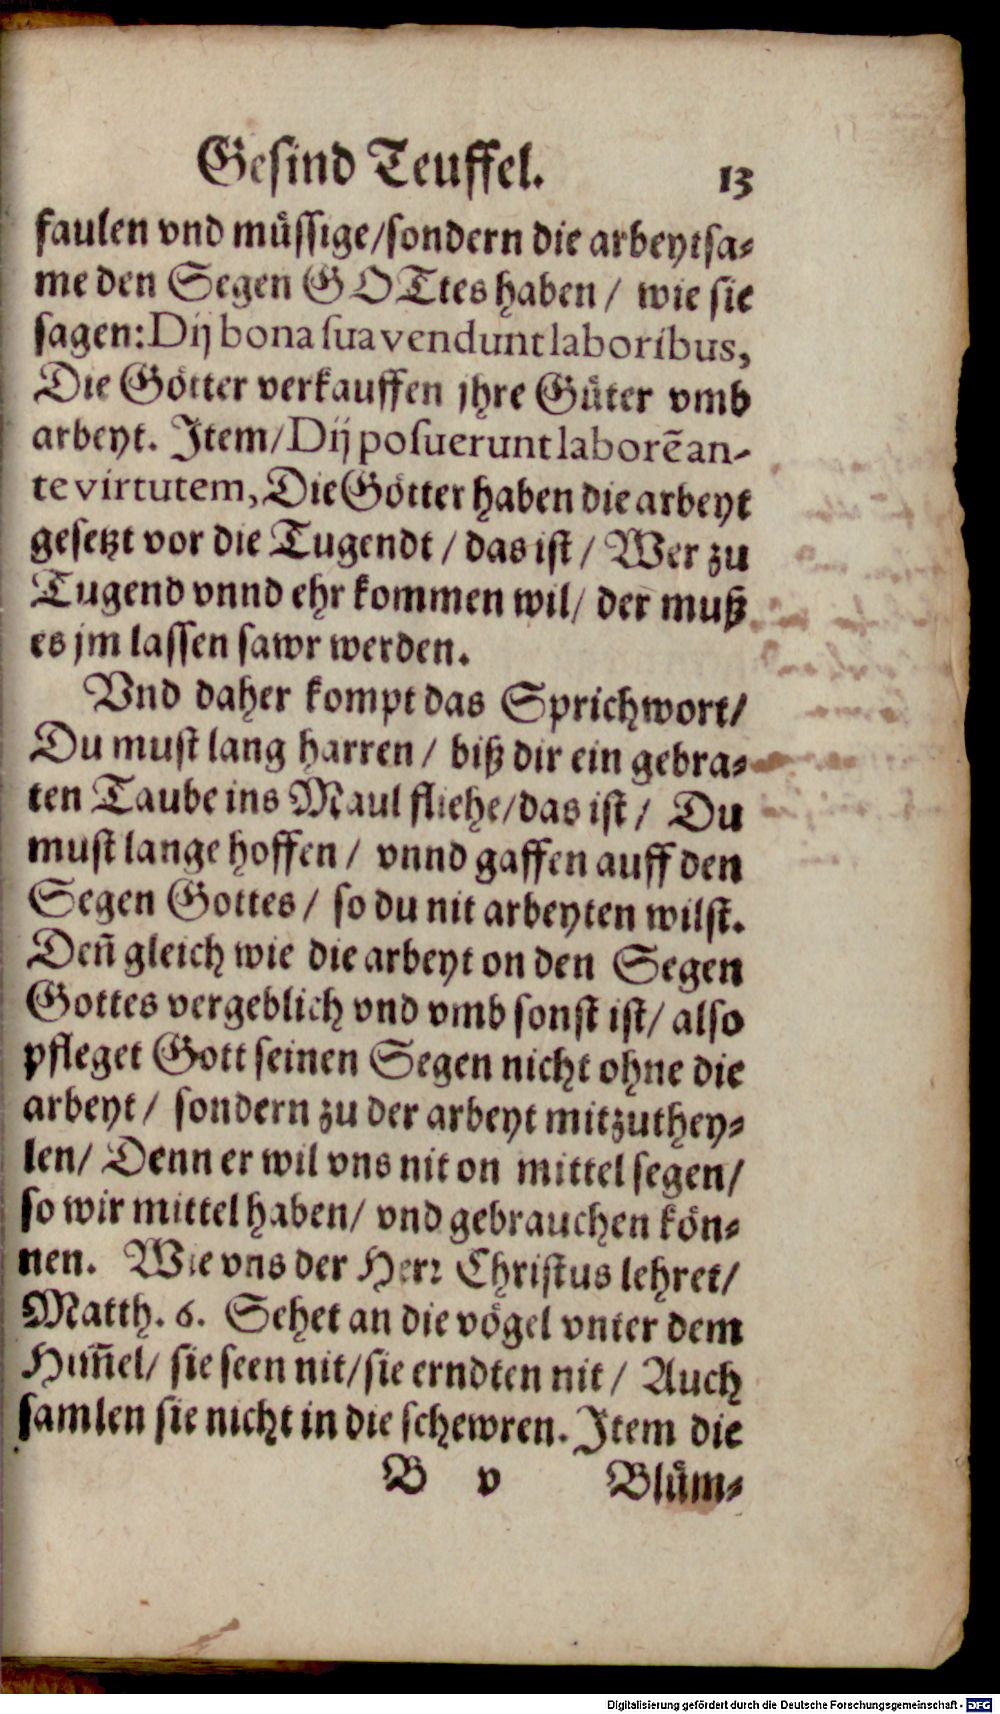 Gesind Teuffel. 13
faulen vnd müssige/sondern die arbeytsa⸗
me den Segen GOTtes haben/ wie sie
sagen: Dij bona sua vendunt laboribus,
Die Götter verkauffen jhre Güter vmb
arbeyt. Item/Dij posuerunt laborẽ an-
te virtutem, Die Götter haben die arbeyt
gesetzt vor die Tugendt/das ist/ Wer zu
Tugend vnnd ehr kommen wil/ der muß
es jm lassen sawr werden.
Vnd daher kompt das Sprichwort/
Du must lang harren/ biß dir ein gebra⸗
ten Taube ins Maul fliehe/das ist/ Du
must lange hoffen/ vnnd gaffen auff den
Segen Gottes/ so du nit arbeyten wilst.
Deñ gleich wie die arbeyt on den Segen
Gottes vergeblich vnd vmb sonst ist/ also
pfleget Gott seinen Segen nicht ohne die
arbeyt/ sondern zu der arbeyt mitzuthey⸗
len/ Denn er wil vns nit on mittel segen/
so wir mittel haben/ vnd gebrauchen kön⸗
nen. Wie vns der Herr Christus lehret/
Matth. 6. Sehet an die vögel vnter dem
Him̃el/ sie seen nit/sie erndten nit/ Auch
samlen sie nicht in die schewren. Item die
B v Blüm⸗
Digitalisierung gefördert durch die Deutsche Forschungsgemeinschaft - DFG